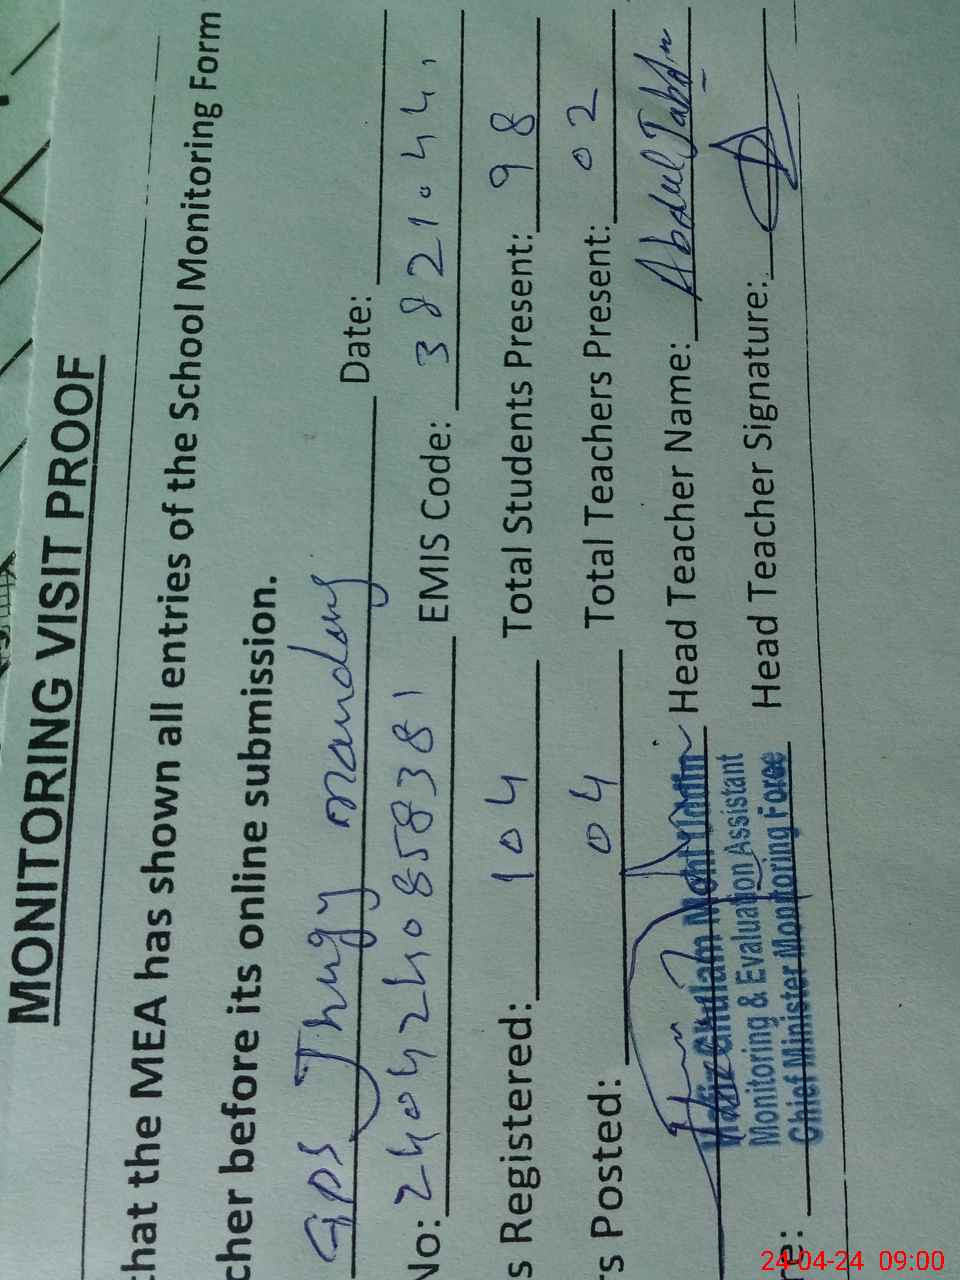 MONITORING VISIT PROOF
that the MEA has shown all entries of the School Monitoring Form
cher before its online submission.
GPS Jhugy mandany Date:
No: 2404240858381 EMIS Code: 3821044
s Registered: 104 Total Students Present: 98
s Posted: 04 Total Teachers Present: 02
Head Teacher Name: Abdul Jabbar
Monitoring & Evaluation Assistant
Chief Minister Monitoring Force
re: Head Teacher Signature:
24-04-24 09:00